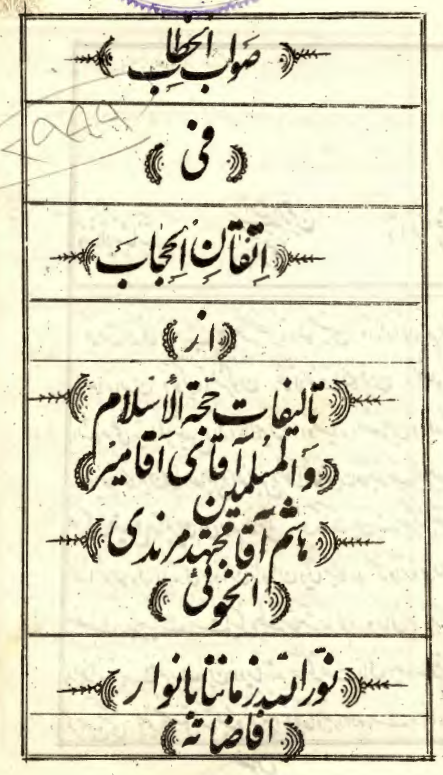 صواب الخطاب
فی
اِتقانِ الحِجاب
از
تألیفات حجة الأسلام
والمسلمین آقای آقا میر
هاشم آقا مجتهد مرندی
الخوئی
نوّر الله زماننا بانوار
افاضاته